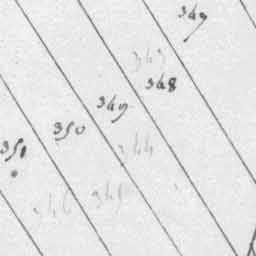 347
343
348
349
350
344
351
345
346